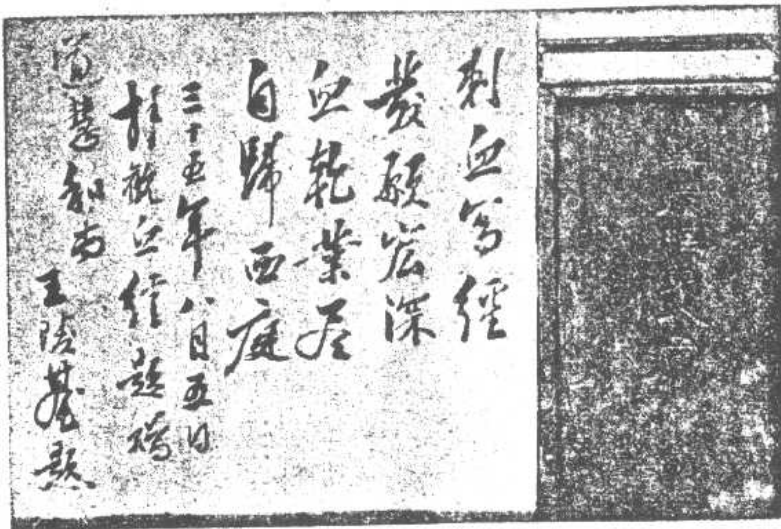 刺血写經
發願宏深
血乾業尽
自歸西庭
三十五年八月五日
拜観血經題瑞
道慧和尚 王陵基題